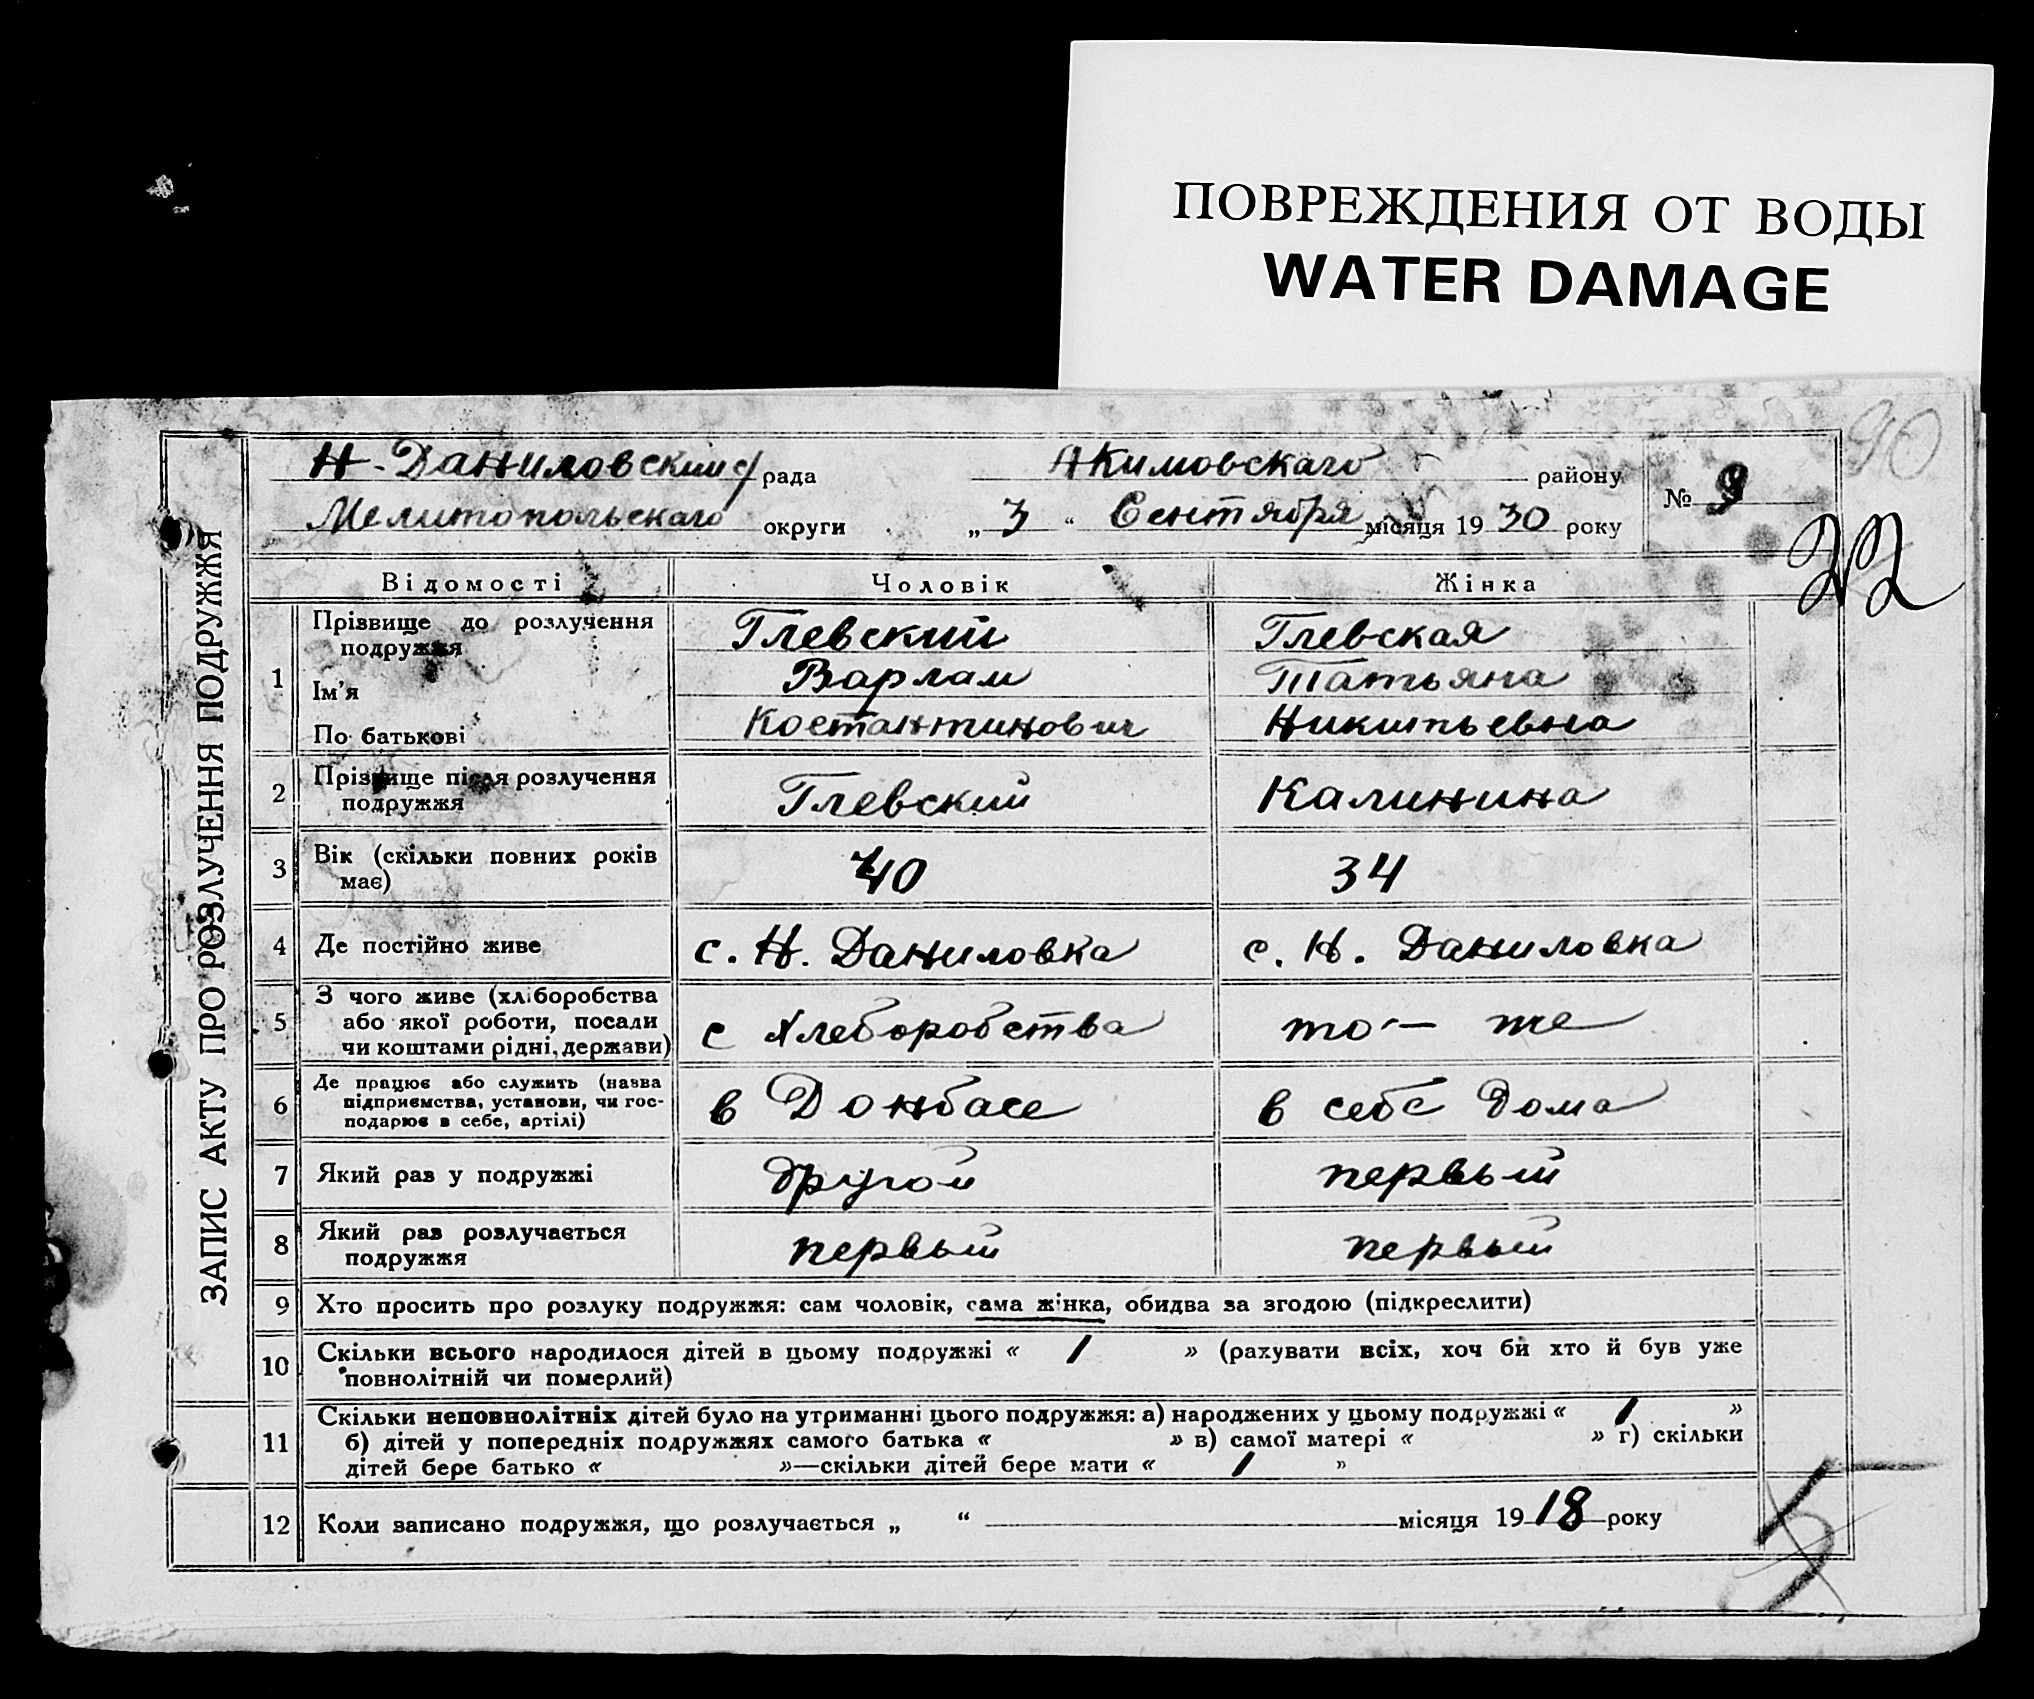 ПОВРЕЖДЕНИЯ ОТ ВОДЫ
WATER DAMAGE
90
Н-Даниловский рада Акимовскаго району № 9
Мелитопольскаго округи „ 3 “ Сентября місяця 1930 року
22
ЗАПИС АКТУ ПРО РОЗЛУЧЕННЯ ПОДРУЖЖЯ
Відомості Чоловік Жінка
1 Прізвище до розлучення подружжя Глевский Глевская
Ім'я Варлам Татьяна
По батькові Костантинович Никитьевна
2 Прізвище після розлучення подружжя Глевский Калинина
3 Вік (скільки повних років має) 40 34
4 Де постійно живе с. Н. Даниловка с. Н. Даниловка
5 З чого живе (хліборобства або якої роботи, посади чи коштами рідні, держави) с хлеборобства то — же
6 Де працює або служить (назва підприємства, установи, чи господарює в себе, артілі) в Донбасе в себе дома
7 Який раз у подружжі другой первый
8 Який раз розлучається подружжя первый первый
9 Хто просить про розлуку подружжя: сам чоловік, сама жінка, обидва за згодою (підкреслити)
10 Скільки всього народилося дітей в цьому подружжі « 1 » (рахувати всіх, хоч би хто й був уже
повнолітній чи померлий)
11 Скільки неповнолітніх дітей було на утриманні цього подружжя: а) народжених у цьому подружжі « 1 »
б) дітей у попередніх подружжях самого батька « » в) самої матері « » г) скільки
дітей бере батько « »—скільки дітей бере мати « 1 »
12 Коли записано подружжя, що розлучається „ “ місяця 1918 року